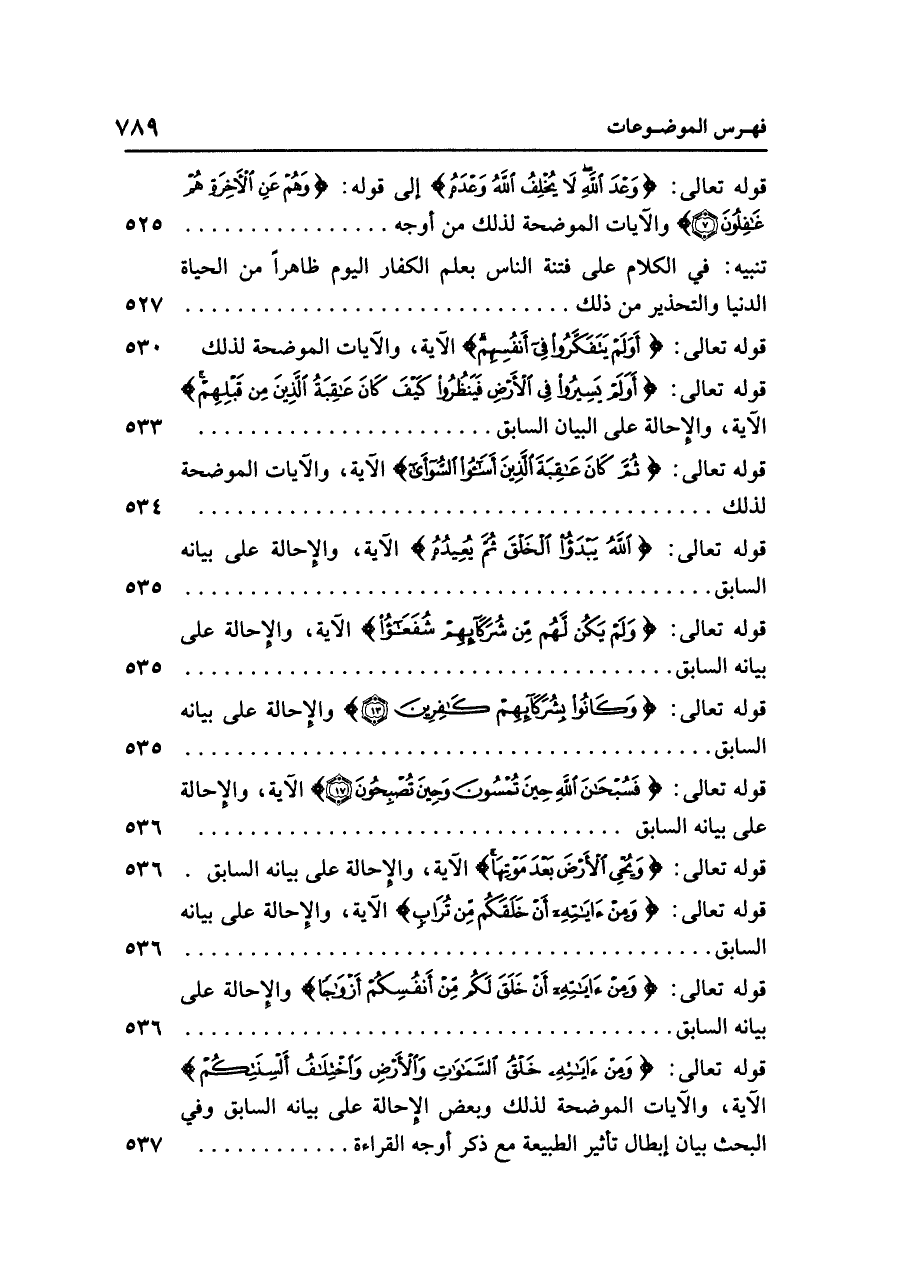 فهـرس الموضـوعات ٧٨٩
قوله تعالى: ﴿وَعْدَ اللَّهِ لَا يُخْلِفُ اللَّهُ وَعْدَهُ﴾ إلى قوله: ﴿وَهُمْ عَنِ الْآخِرَةِ هُمْ
غَافِلُونَ ٧﴾ والآيات الموضحة لذلك من أوجه ................ ٥٢٥
تنبيه: في الكلام على فتنة الناس بعلم الكفار اليوم ظاهراً من الحياة
الدنيا والتحذير من ذلك .............................. ٥٢٧
قوله تعالى: ﴿أَوَلَمْ يَتَفَكَّرُوا فِي أَنفُسِهِمْ﴾ الآية، والآيات الموضحة لذلك ٥٣٠
قوله تعالى: ﴿أَوَلَمْ يَسِيرُوا فِي الْأَرْضِ فَيَنظُرُوا كَيْفَ كَانَ عَاقِبَةُ الَّذِينَ مِن قَبْلِهِمْ﴾
الآية، والإحالة على البيان السابق ....................... ٥٣٣
قوله تعالى: ﴿ثُمَّ كَانَ عَاقِبَةَ الَّذِينَ أَسَاءُوا السُّوأَىٰ﴾ الآية، والآيات الموضحة
لذلك ........................................ ٥٣٤
قوله تعالى: ﴿اللَّهُ يَبْدَؤُا الْخَلْقَ ثُمَّ يُعِيدُهُ﴾ الآية، والإحالة على بيانه
السابق ......................................... ٥٣٥
قوله تعالى: ﴿وَلَمْ يَكُن لَّهُم مِّن شُرَكَائِهِمْ شُفَعَاءُ﴾ الآية، والإحالة على
بيانه السابق ...................................... ٥٣٥
قوله تعالى: ﴿وَكَانُوا بِشُرَكَائِهِمْ كَافِرِينَ ١٣﴾ والإحالة على بيانه
السابق ......................................... ٥٣٥
قوله تعالى: ﴿فَسُبْحَانَ اللَّهِ حِينَ تُمْسُونَ وَحِينَ تُصْبِحُونَ ١٧﴾ الآية، والإحالة
على بيانه السابق ................................. ٥٣٦
قوله تعالى: ﴿وَيُحْيِي الْأَرْضَ بَعْدَ مَوْتِهَا﴾ الآية، والإحالة على بيانه السابق . ٥٣٦
قوله تعالى: ﴿وَمِنْ ءَايَاتِهِ أَنْ خَلَقَكُم مِّن تُرَابٍ﴾ الآية، والإحالة على بيانه
السابق ......................................... ٥٣٦
قوله تعالى: ﴿وَمِنْ ءَايَاتِهِ أَنْ خَلَقَ لَكُم مِّنْ أَنفُسِكُمْ أَزْوَاجًا﴾ والإحالة على
بيانه السابق ...................................... ٥٣٦
قوله تعالى: ﴿وَمِنْ ءَايَاتِهِ خَلْقُ السَّمَاوَاتِ وَالْأَرْضِ وَاخْتِلَافُ أَلْسِنَتِكُمْ﴾
الآية، والآيات الموضحة لذلك وبعض الإحالة على بيانه السابق وفي
البحث بيان إبطال تأثير الطبيعة مع ذكر أوجه القراءة ............ ٥٣٧